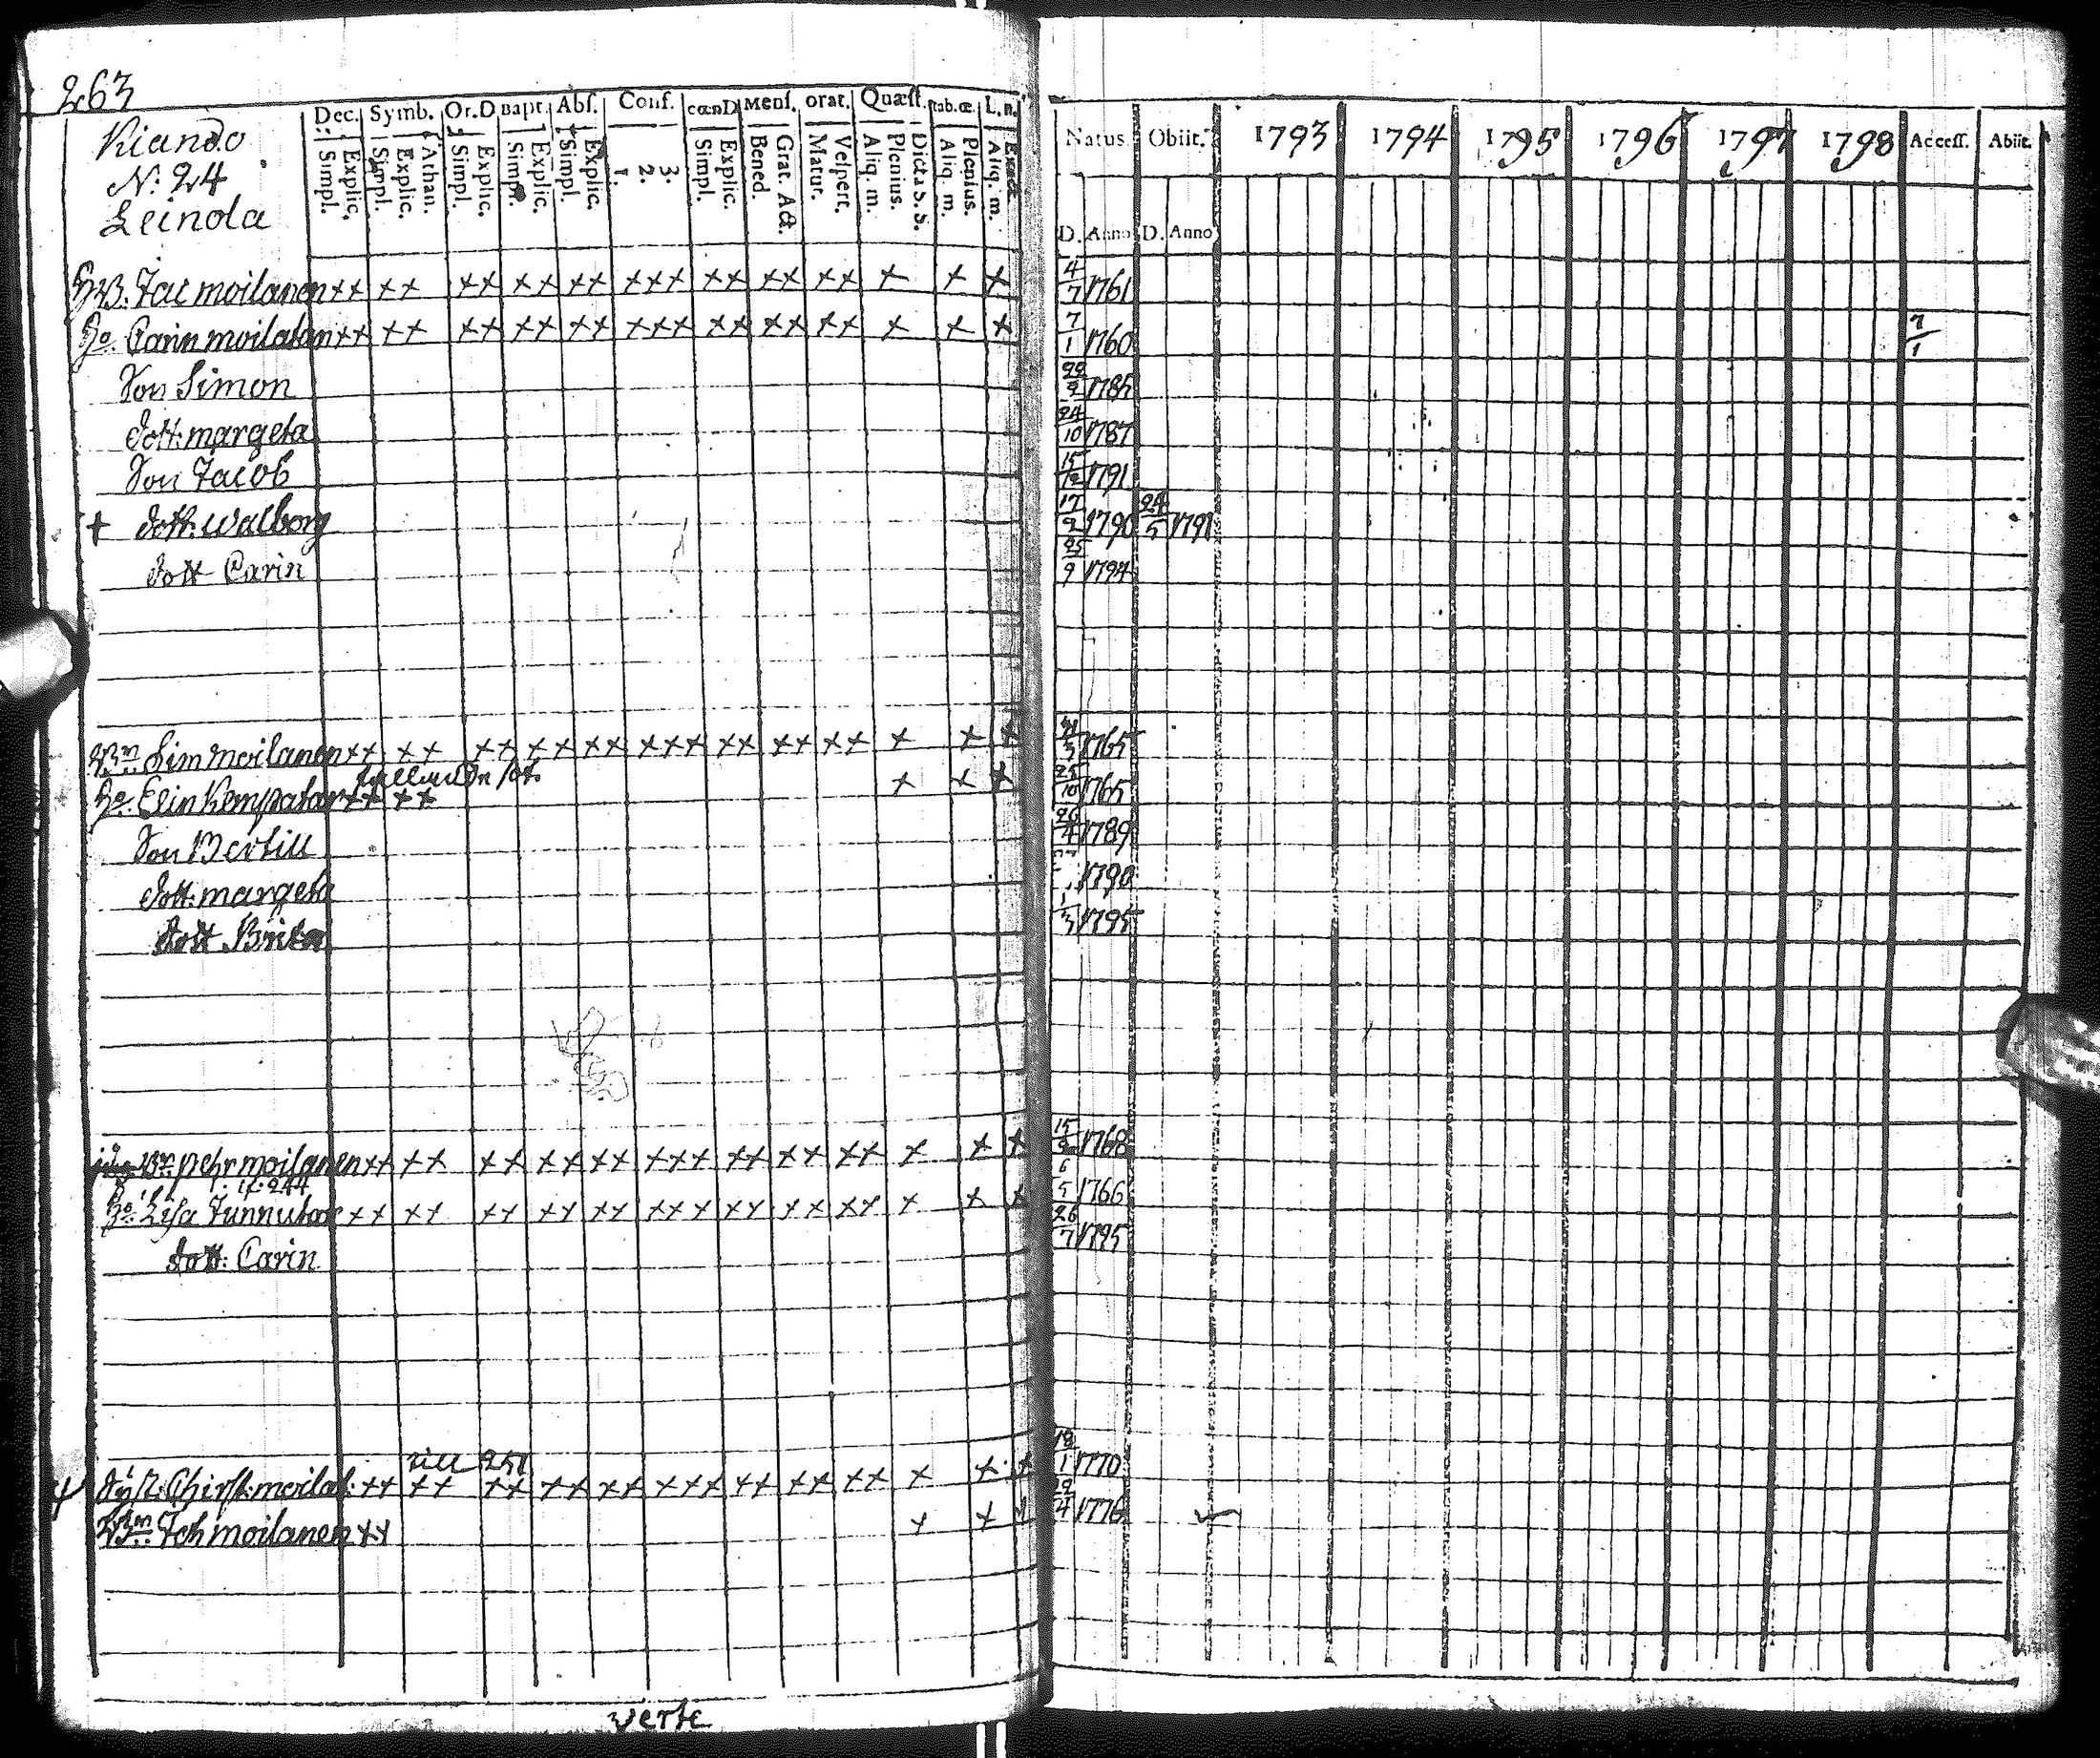 263
Dec. Symb. Or.D Bapt. Abs. Conf. cœnD Mens. orat. Quæst. tab.œ. L.n.
Simpl. Explic. Simpl. Explic. Athan. Simpl. Explic. Simpl. Explic. Simpl. Explic. 1. 2. 3. Simpl. Explic. Bened. Grat. Act. Matut. Vespert. Aliq. m. Plenius. Dicta S. S. Aliq. m. Plenius. Aliq. m. Exact.
Natus. Obiit. 1793 1794 1795 1796 1797 1798 Access. Abiit.
D. Anno D. Anno
Kiando
N: 24
Leinola
Jac moilanen ++ ++ ++ ++ ++ +++ ++ ++ ++ + + + 4/7 1761
Ho. Carin moilatar ++ ++ ++ ++ ++ +++ ++ ++ ++ + + + 7/1 1760 7/1
Son Simon 1785
dott: margeta 24/10 1787
Son Jacob 15/12 1791
+ dott: walborg 17/2 1790 24/5 1791
dott Carin 25/9 1794
Sim moilanen ++ ++ ++ ++ ++ +++ ++ ++ ++ + + + 1765
Ho. Elin Kempatar ++ ++ + + + 25/10 1765
Son Bertill 26/4 1789
dott: margeta 1790
dott Brita 1/3 1795
pehr moilanen ++ ++ ++ ++ ++ +++ ++ ++ ++ + + + 1768
if: 244
Ho. Lisa Junnutar ++ ++ ++ ++ ++ +++ ++ ++ ++ + + + 6/5 1766
dott: Carin 26/7 1795
till 251
Chirst: moilat: ++ ++ ++ ++ ++ +++ ++ ++ ++ + + + 18/1 1770
Joh moilanen ++ + + 1776
verte